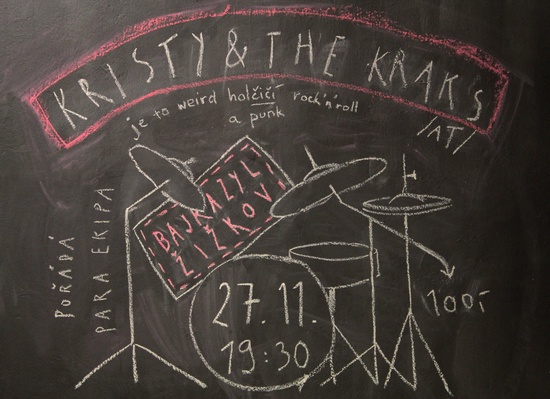 KRISTY & THE KRAKS
/AT/
je to weird holčičí rock'n'roll
a punk
BAJKAZYL
ŽIŽKOV
POŘÁDÁ
PARA EKIPA
27.11.
19:30